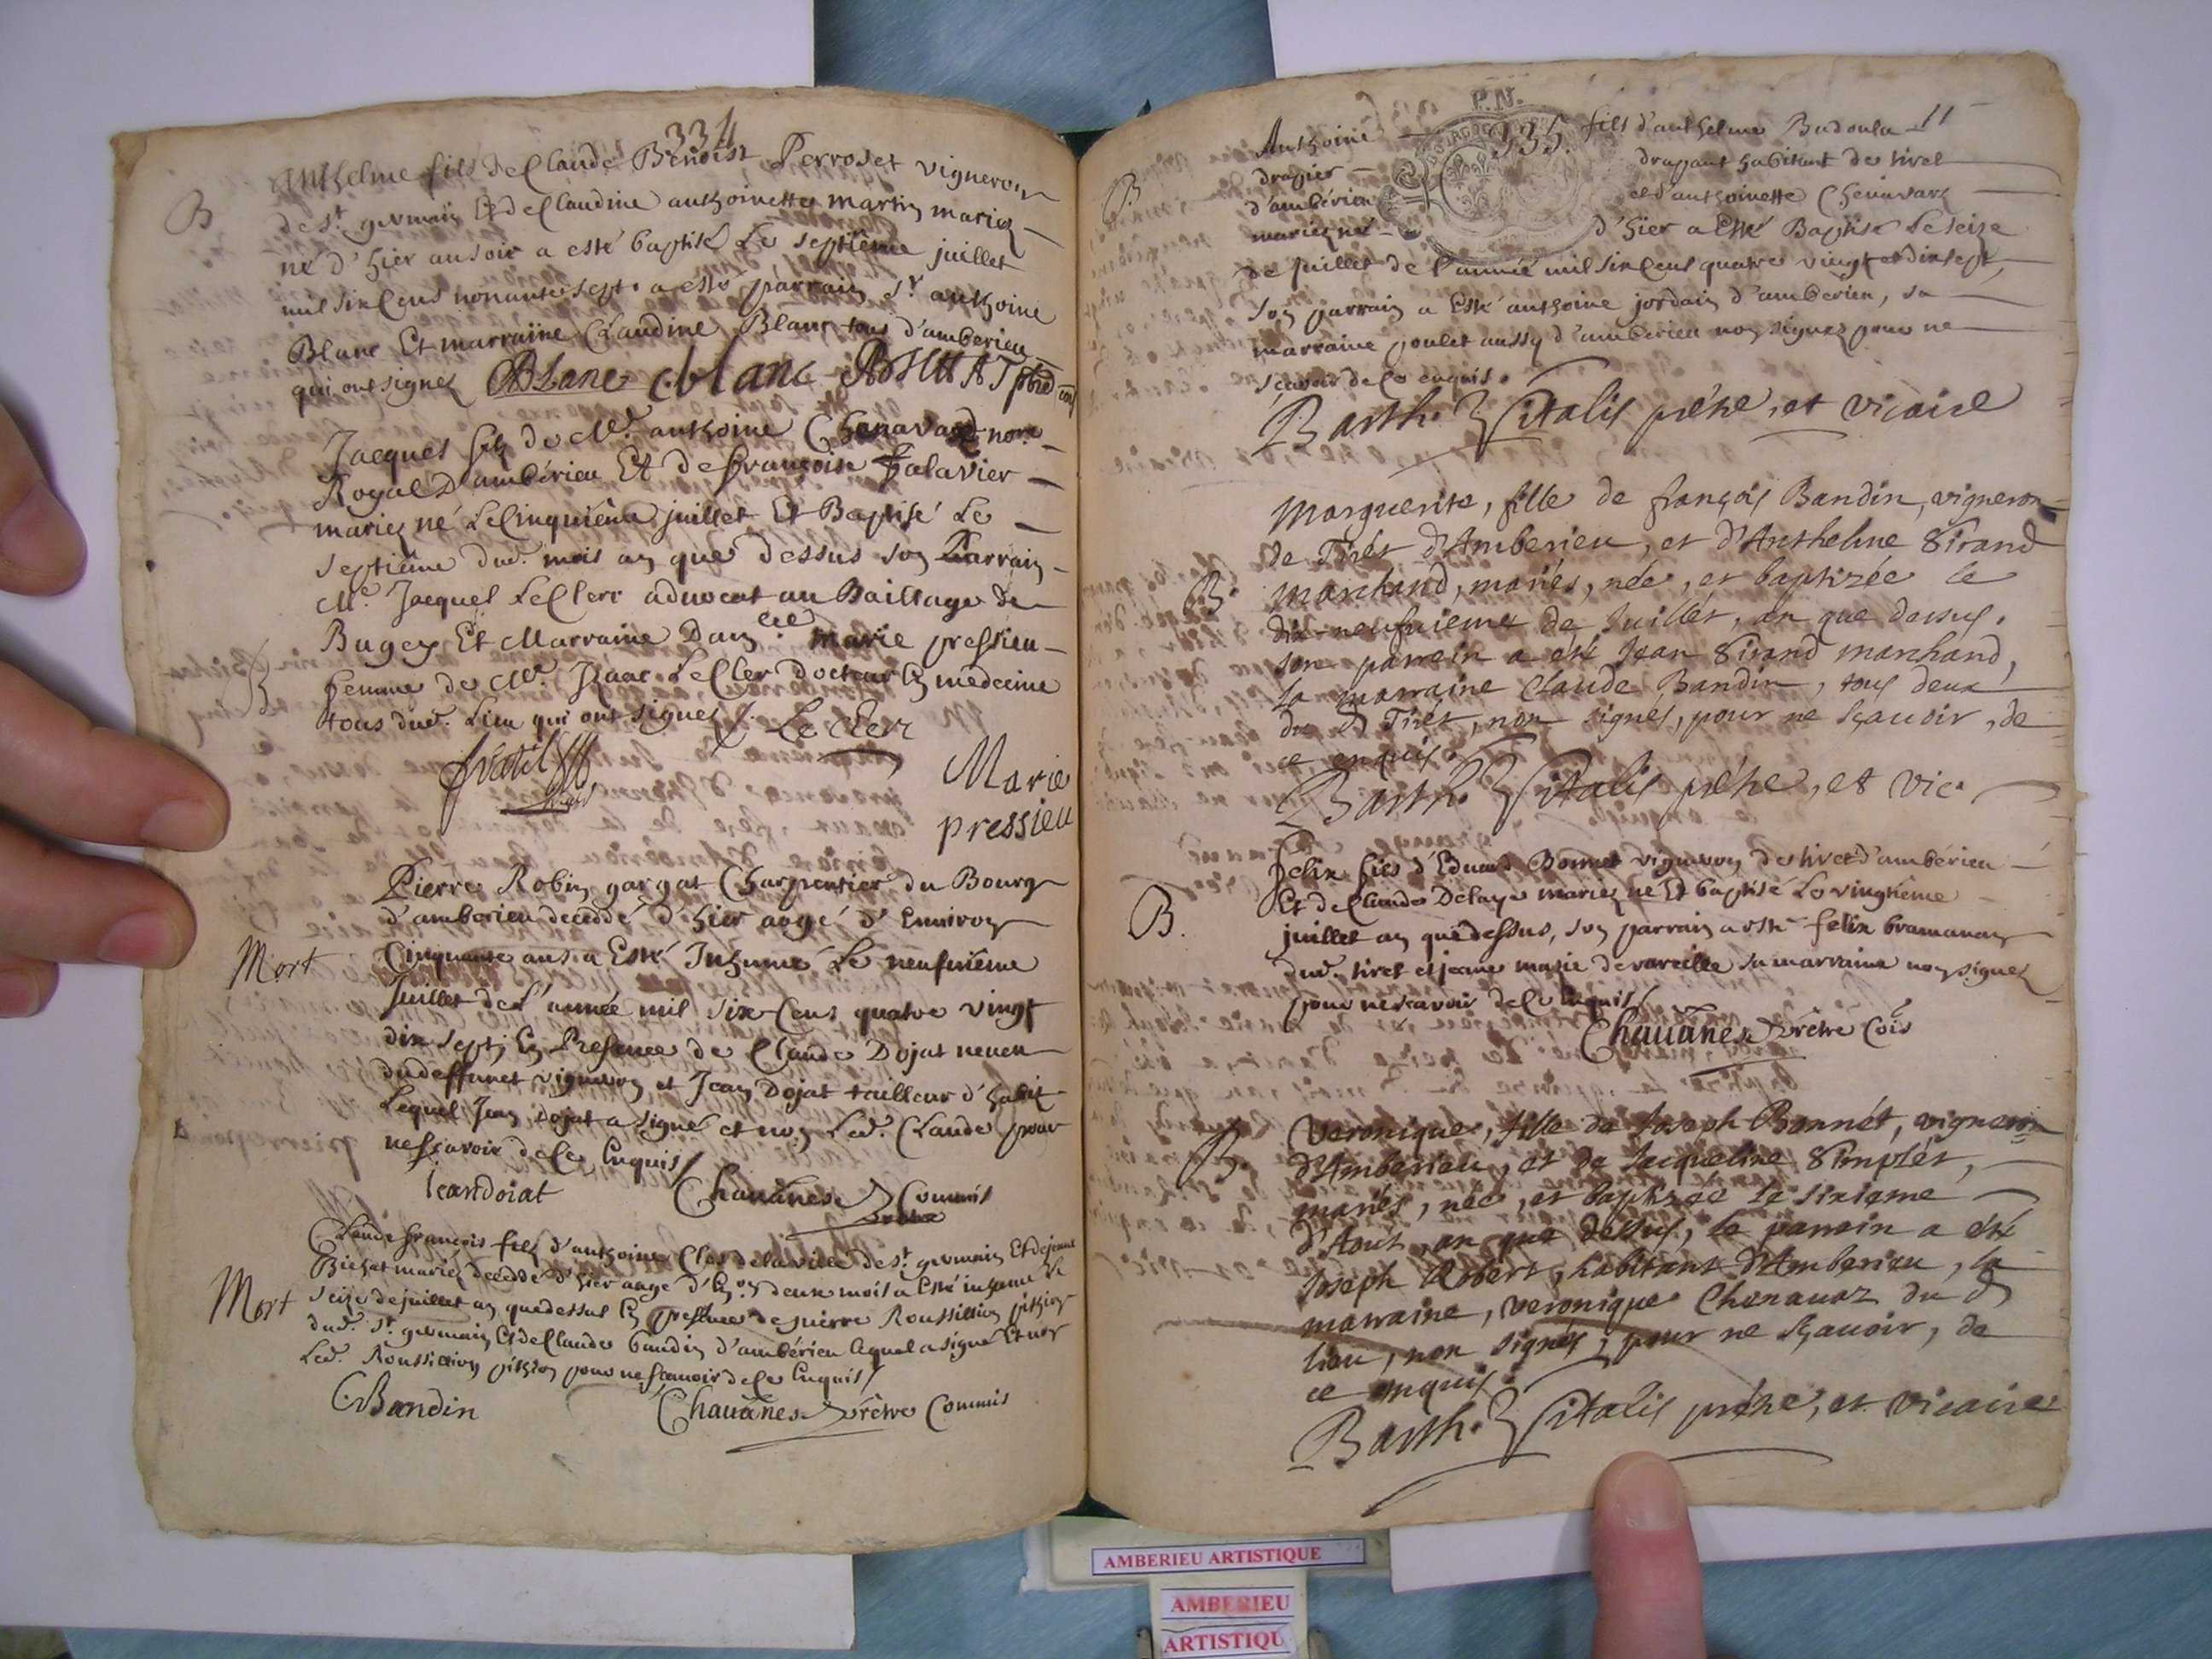 334
B
Anthelme fils de Claude Benoist Perroset vigneron
de st. germain Et de Claudine anthoinette martin mariez
né d'hier au soir a esté baptisé Le septième juillet
mil six Cens nonante sept. a esté parrain sr. anthoine
Blanc Et marraine Claudine Blanc tous d'amberieu
qui ont signez Blanc C. blanc
Jacques filz de Me. anthoine Chenavaz nore
Royal D'ambérieu Et de françoise falavier
mariez né Le Cinquième juillet Et Baptisé Le
septième dud. mois an que dessus son Parrain
Me. Jacques Le Clerc advocat au Baillage de
B
Bugey Et Marraine Damelle marie pressieu
femme de Mr. Isaac Le Cler docteur En medecine
tous dud. Lieu qui ont signez /. Le Clerc
Marie
pressieu
Pierre Robin gargat Charpentier du Bourg
d'amberieu deceddé d'hier aagé d'Environ
Mort
Cinquante ans a Esté Inhumé Le neufvième
Juillet de L'année mil six Cens quatre vingt
dix sept, En Presence de Claude Dojat neveu
du deffunct vigneron et Jean Dojat tailleur d'habit
Lequel Jean dojat a signé et non Led. Claude pour
ne scavoir de Ce Enquis /
Jeandoiat Chauanes Prêtre Commis
Claude françois filz d'anthoine Clos de la ville de st. germain Et de jeanne
Bichat mariez deceddé d'hier aagé d'En.on deux mois a Esté inhumé Le
Mort
seize de juillet an que dessus En presence de pierre Roussillion pithion
dud. st. germain Et de Claude baudin d'ambérieu lequel a signé Et non
Led. Roussillion pithion pour ne scavoir de Ce Enquis /
C. Bandin Chauanes Prêtre Commis
P.N.
335.
11
B.
Anthoine fils d'anthelme Badoula
dragier drappant habitant de tiret
d'ambérieu et d'anthoinette Chenavaz
mariez né d'hier a Esté Baptisé Le seize
de juillet de l'année mil six Cens quatre vingt et dix sept,
son parrain a Esté anthoine jordain d'ambérieu, sa
marraine poulet aussy d'amberieu non signez pour ne
sçavoir de Ce enquis.
Barth. Vitalis prêtre, et vicaire
Marguerite, fille de françois Bandin, vigneron
de Tirét d'Amberieu, et d'Anthelme Girand
B.
marchand, mariés, née, et baptizée le
dix-neufuieme de Juillét, an que dessus.
son parrein a esté Jean Girand marchand,
la marraine Claude Bandin, tous deux
du d Tirét, non signés, pour ne sçauoir, de
ce enquis.
Barth. Vitalis prêtre, et vic.
felix fils d'Eduard Bonnet vigneron de tiret d'ambérieu
Et de Claude Delaye mariez né Et baptisé Le vingtième
B.
juillet an que dessus, son parrain a esté felix bramanan
dud. tiret et jeane marie de vareille sa marraine non signez
pour ne scavoir de Ce Enquis /
Chauanes Prêtre Cõis
B.
Veronique, fille de Joseph Bonnét, vigneron
d'Amberieu, et de Jacqueline Simplét,
mariés, née, et baptizée le sixieme
d'Aout, an que dessus, le parrein a esté
Joseph Robert, habitant d'Amberieu, la
marraine, veronique Chenauaz du d
lieu, non signés, pour ne sçauoir, de
ce enquis.
Barth. Vitalis prêtre, et vicaire
AMBERIEU ARTISTIQUE
AMBERIEU
ARTISTIQU